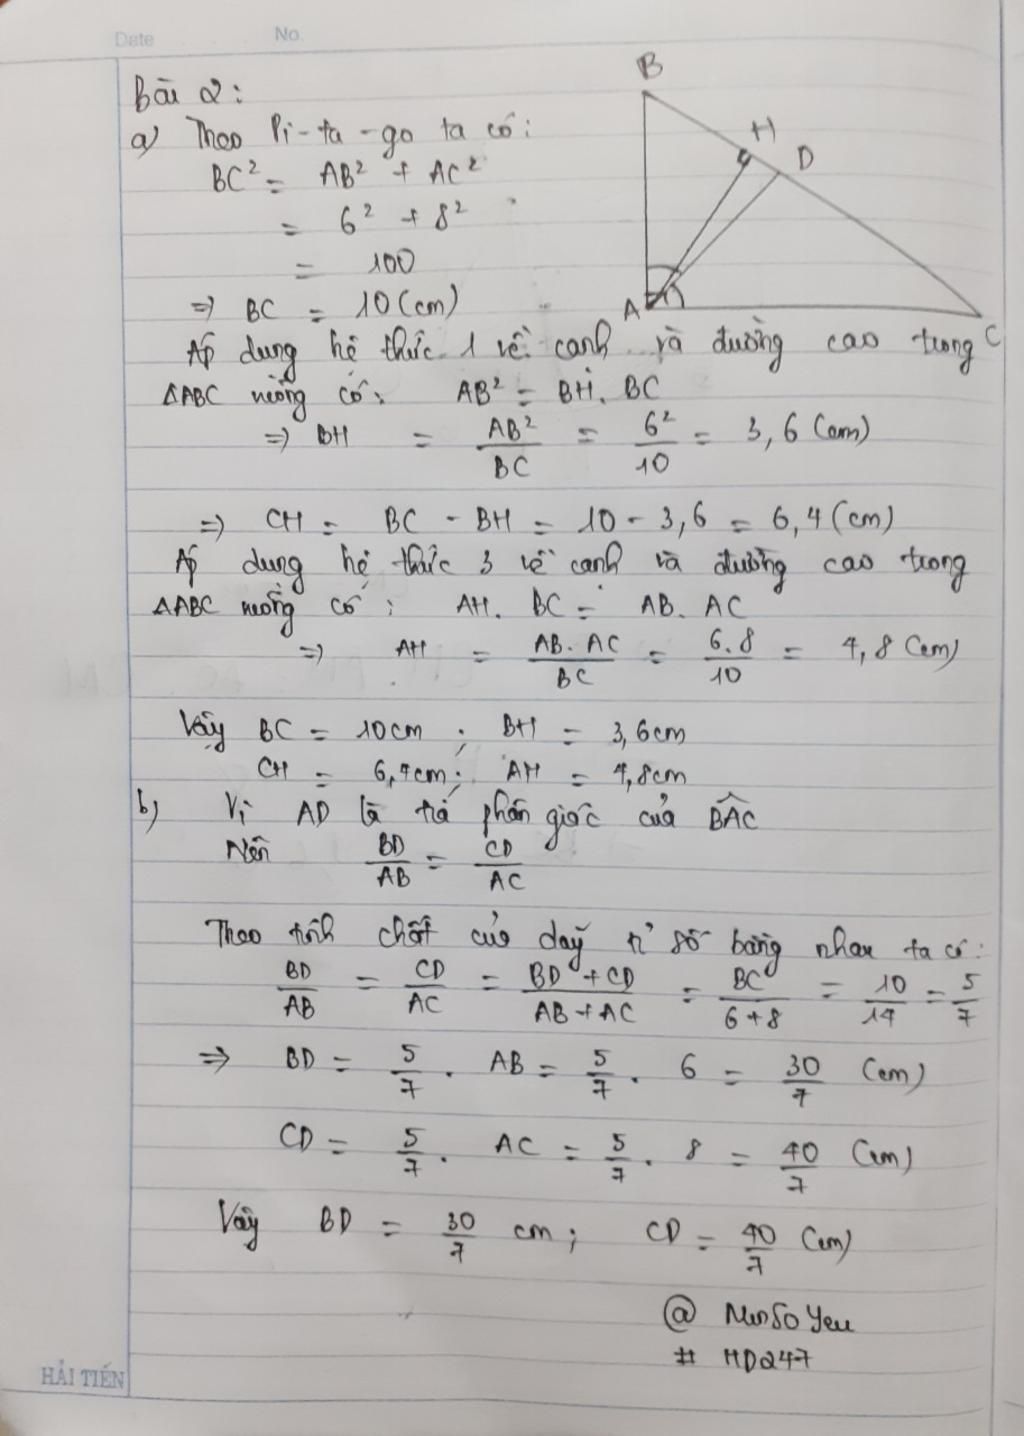 Date No.
Bài 2:
a) Theo Pi-ta-go ta có:
BC² = AB² + AC²
= 6² + 8²
= 100
=> BC = 10 (cm)
B
H
D
A
C
Áp dụng hệ thức 1 về cạnh và đường cao trong
ΔABC vuông có: AB² = BH. BC
=> BH = AB²/BC = 6²/10 = 3,6 (cm)
=> CH = BC - BH = 10 - 3,6 = 6,4 (cm)
Áp dụng hệ thức 3 về cạnh và đường cao trong
ΔABC vuông có: AH. BC = AB. AC
=> AH = AB. AC/BC = 6.8/10 = 4,8 (cm)
Vậy BC = 10cm ; BH = 3,6cm
CH = 6,4cm; AH = 4,8cm
b) Vì AD là tia phân giác của BÂC
Nên BD/AB = CD/AC
Theo tính chất của dãy tỉ số bằng nhau ta có:
BD/AB = CD/AC = BD + CD/AB + AC = BC/6+8 = 10/14 = 5/7
=> BD = 5/7 . AB = 5/7 . 6 = 30/7 (cm)
CD = 5/7 . AC = 5/7 . 8 = 40/7 (cm)
Vậy BD = 30/7 cm ; CD = 40/7 (cm)
@ MinSoYeu
# HD247
HẢI TIẾN